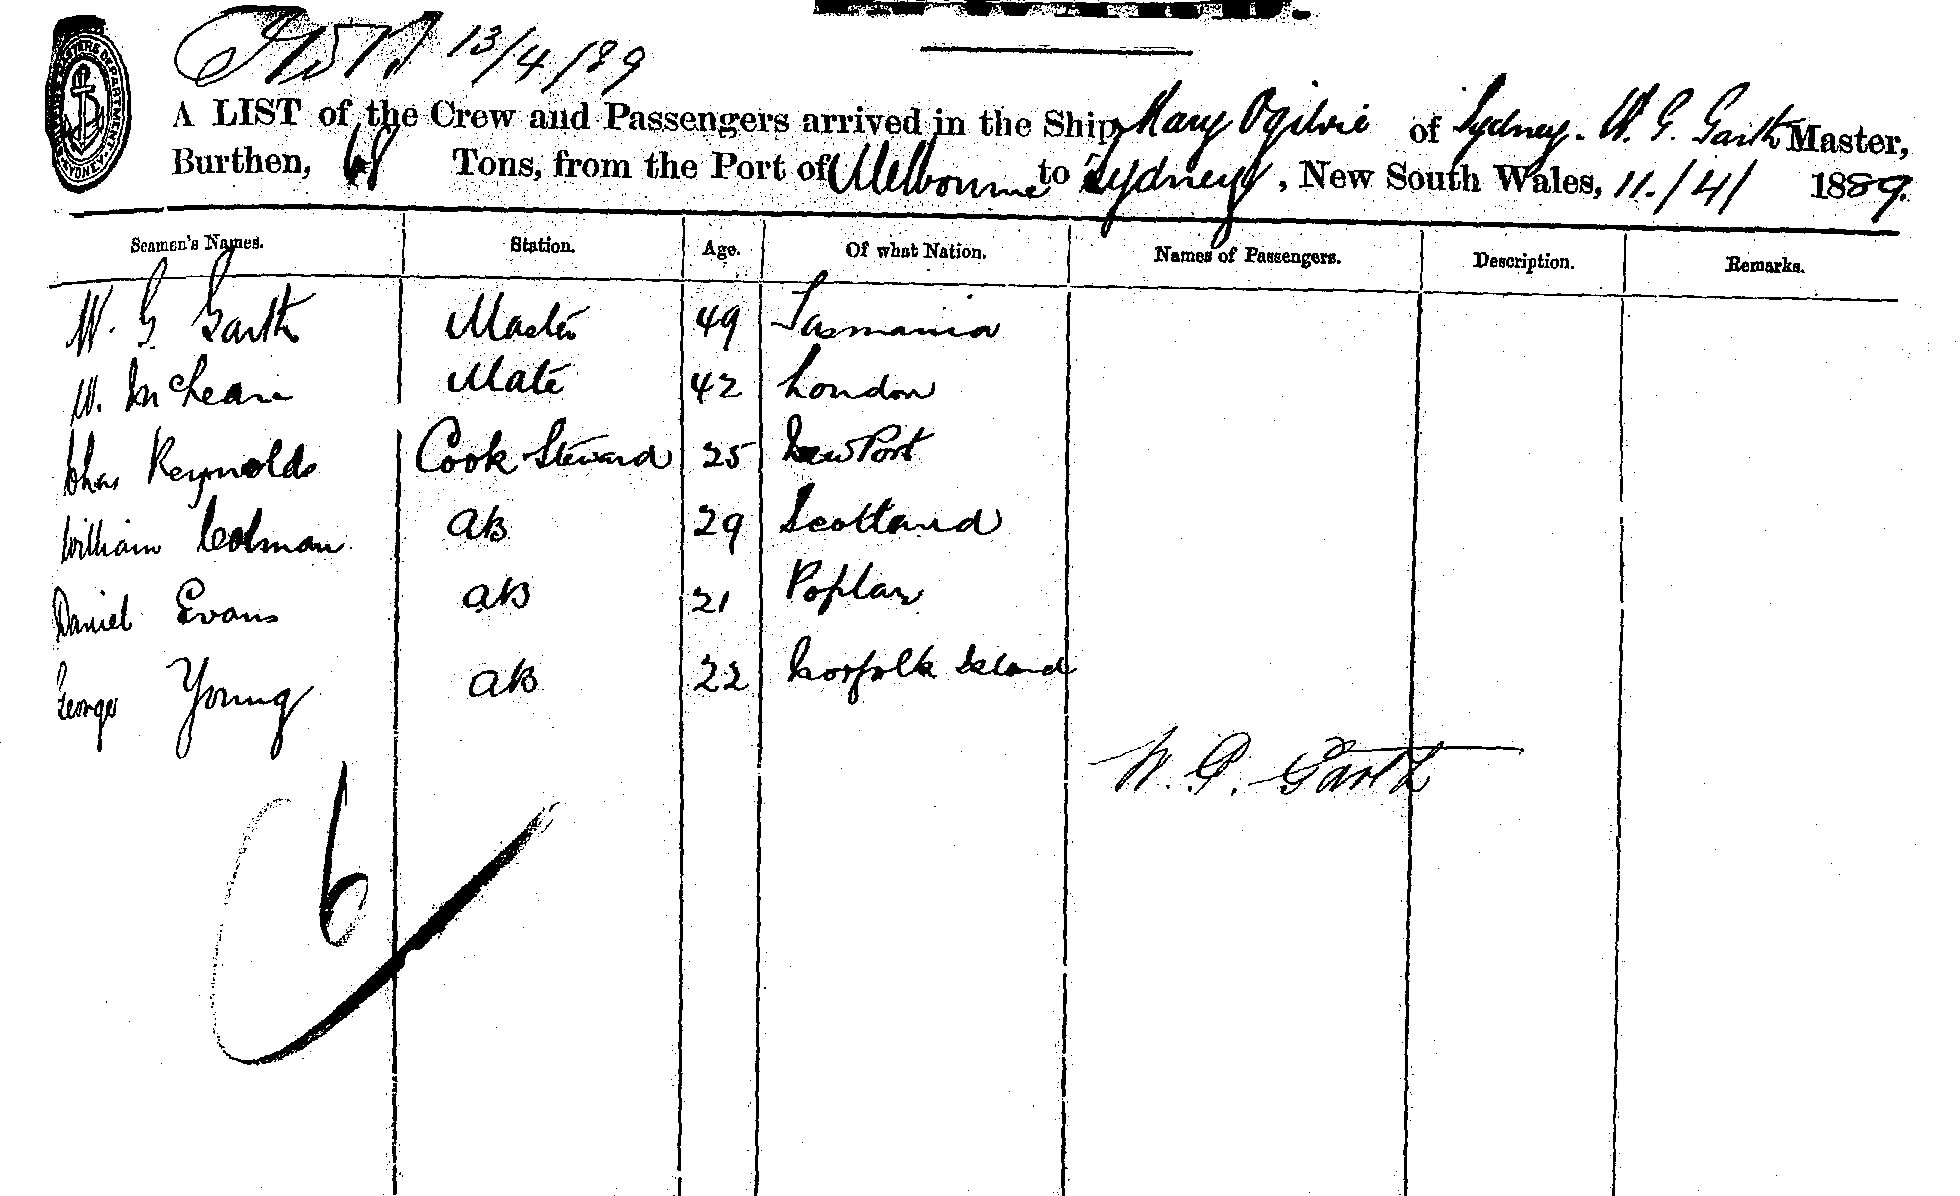 13/4/89
A LIST of the Crew and Passengers arrived in the Ship Mary Ogilvie of Sydney. W. G. Garth Master,
Burthen, 68 Tons, from the Port of Melbourne to Sydney, New South Wales, 11/4/ 1889.
Seamen's Names. Station. Age. Of what Nation. Names of Passengers. Description. Remarks.
W. G. Garth Master 49 Tasmania
W. McLean Mate 42 London
Chas Reynolds Cook Steward 25 NewPort
William Colman AB 29 Scotland
Daniel Evans AB 21 Poplar
George Young AB 22 Norfolk Island
W. G. Garth
6